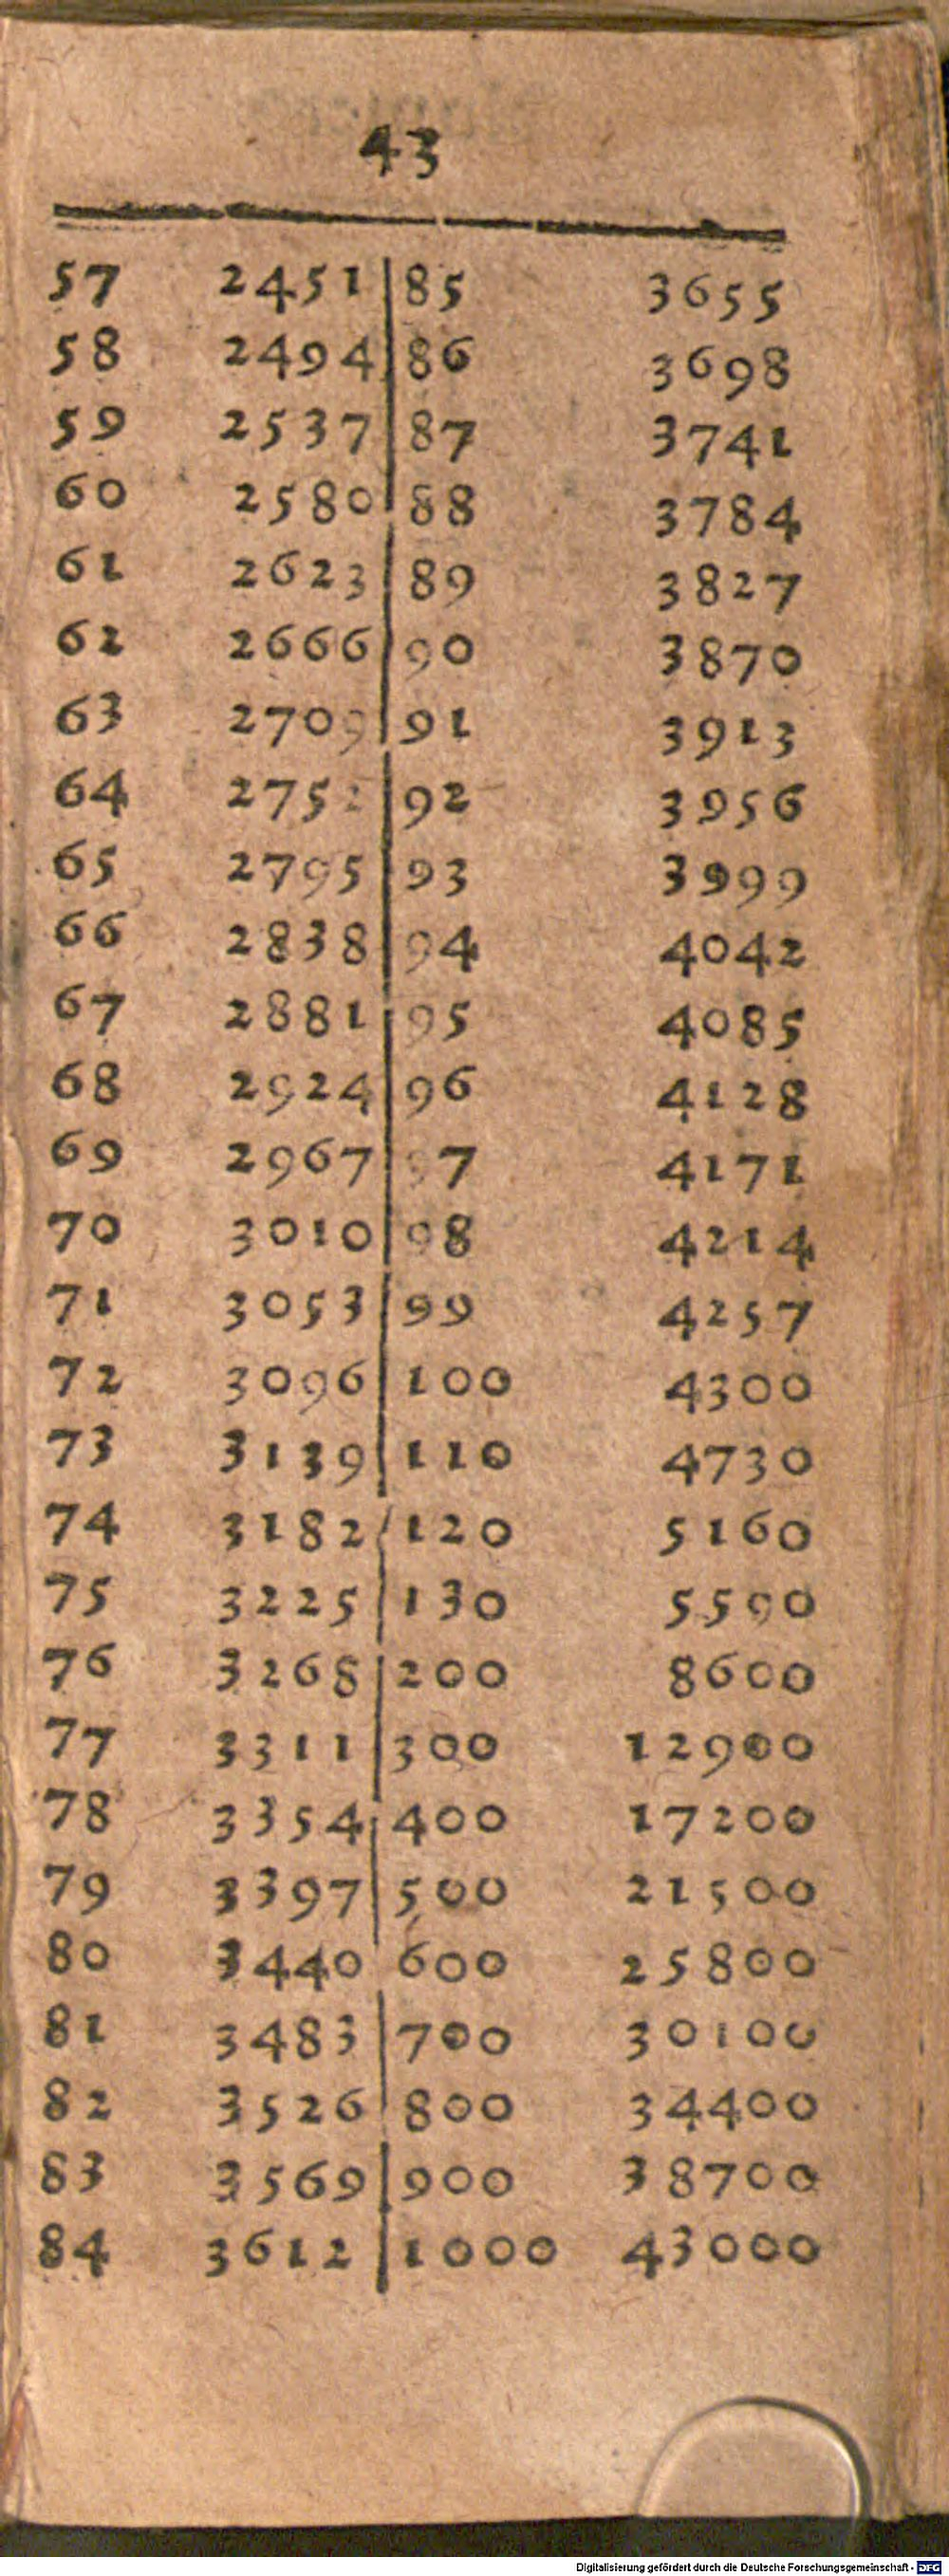 43
57 2451 85 3655
58 2494 86 3698
59 2537 87 3741
60 2580 88 3784
61 2623 89 3827
62 2666 90 3870
63 2709 91 3913
64 2752 92 3956
65 2795 93 3999
66 2838 94 4042
67 2881 95 4085
68 2924 96 4128
69 2967 97 4171
70 3010 98 4214
71 3053 99 4257
72 3096 100 4300
73 3139 110 4730
74 3182 120 5160
75 3225 130 5590
76 3268 200 8600
77 3311 300 12900
78 3354 400 17200
79 3397 500 21500
80 3440 600 25800
81 3483 700 30100
82 3526 800 34400
83 3569 900 38700
84 3612 1000 43000
Digitalisierung gefördert durch die Deutsche Forschungsgemeinschaft - DFG